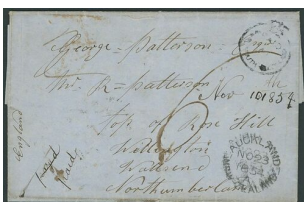 George = Patterson
Mr R = patterson
Nov 10 1854
Top of Rose Hill
Wellington
Wallsend
Northumberland
England
paid
AUCKLAND
NO 23
1854
NEW ZEALAND